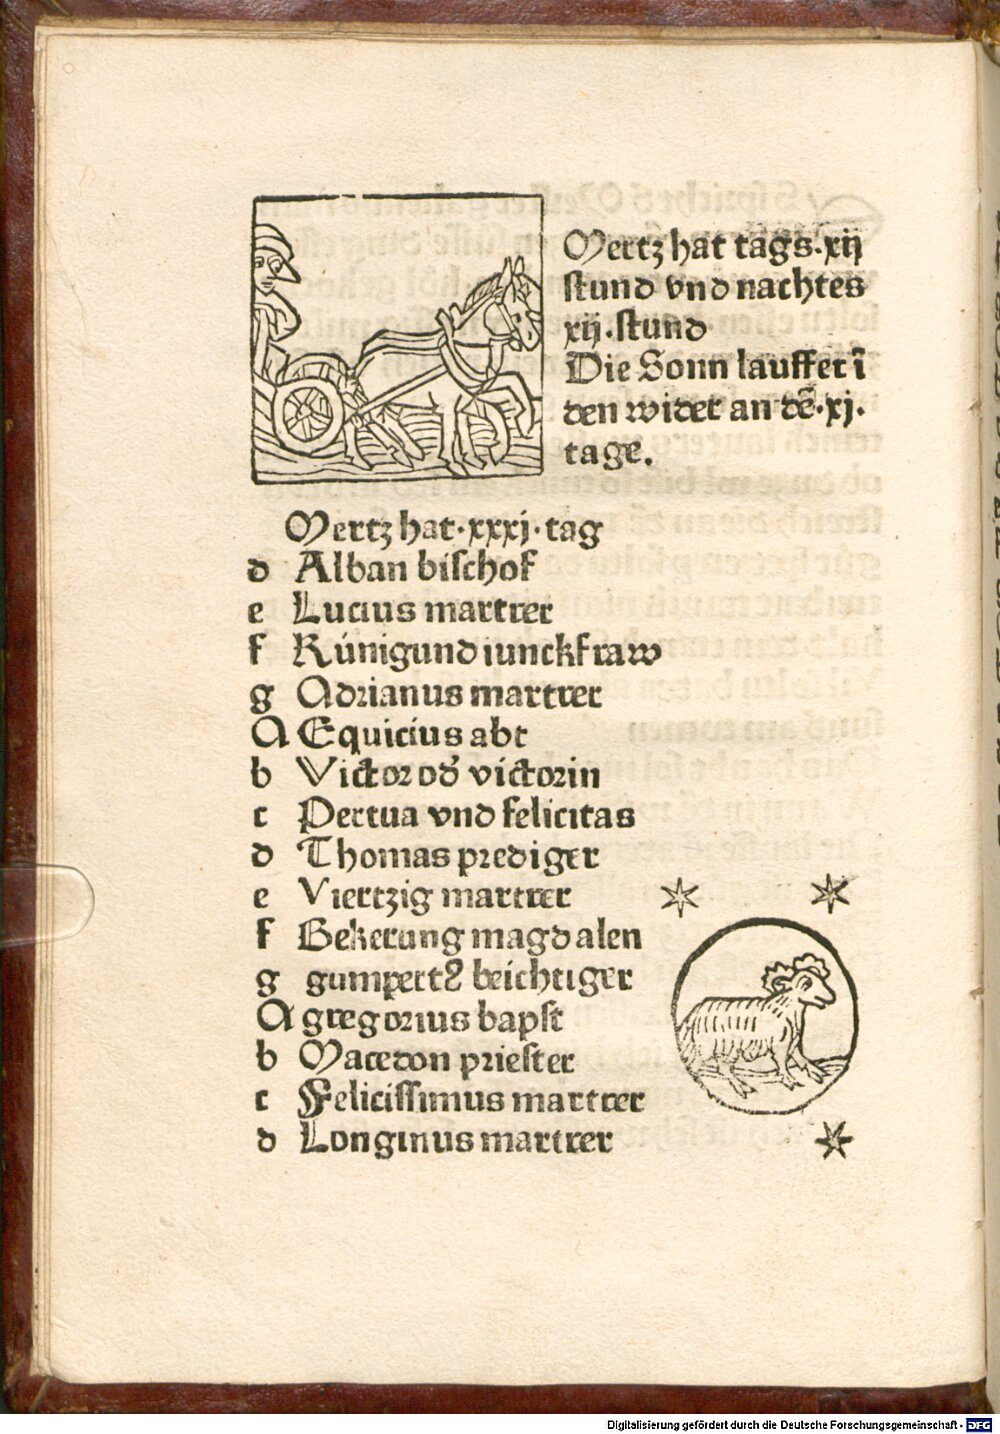 Mertz hat tags·xij
stund vnd nachtes
xij·stund
Die Sonn lauffet ī
den wider an dē·xj·
tage.
Mertz hat·xxxj·tag
d Alban bischof
e Lucius martrer
f Kúnigund iunckfraw
g Adrianus martrer
A Equicius abt
b Victor od̛ victorin
c Pertua vnd felicitas
d Thomas prediger
e Viertzig martrer
f Bekerung magdalen
g gumpertꝰ beichtiger
A gregorius bapst
b Macedon priester
c Felicissimus martrer
d Longinus martrer
Digitalisierung gefördert durch die Deutsche Forschungsgemeinschaft - DFG